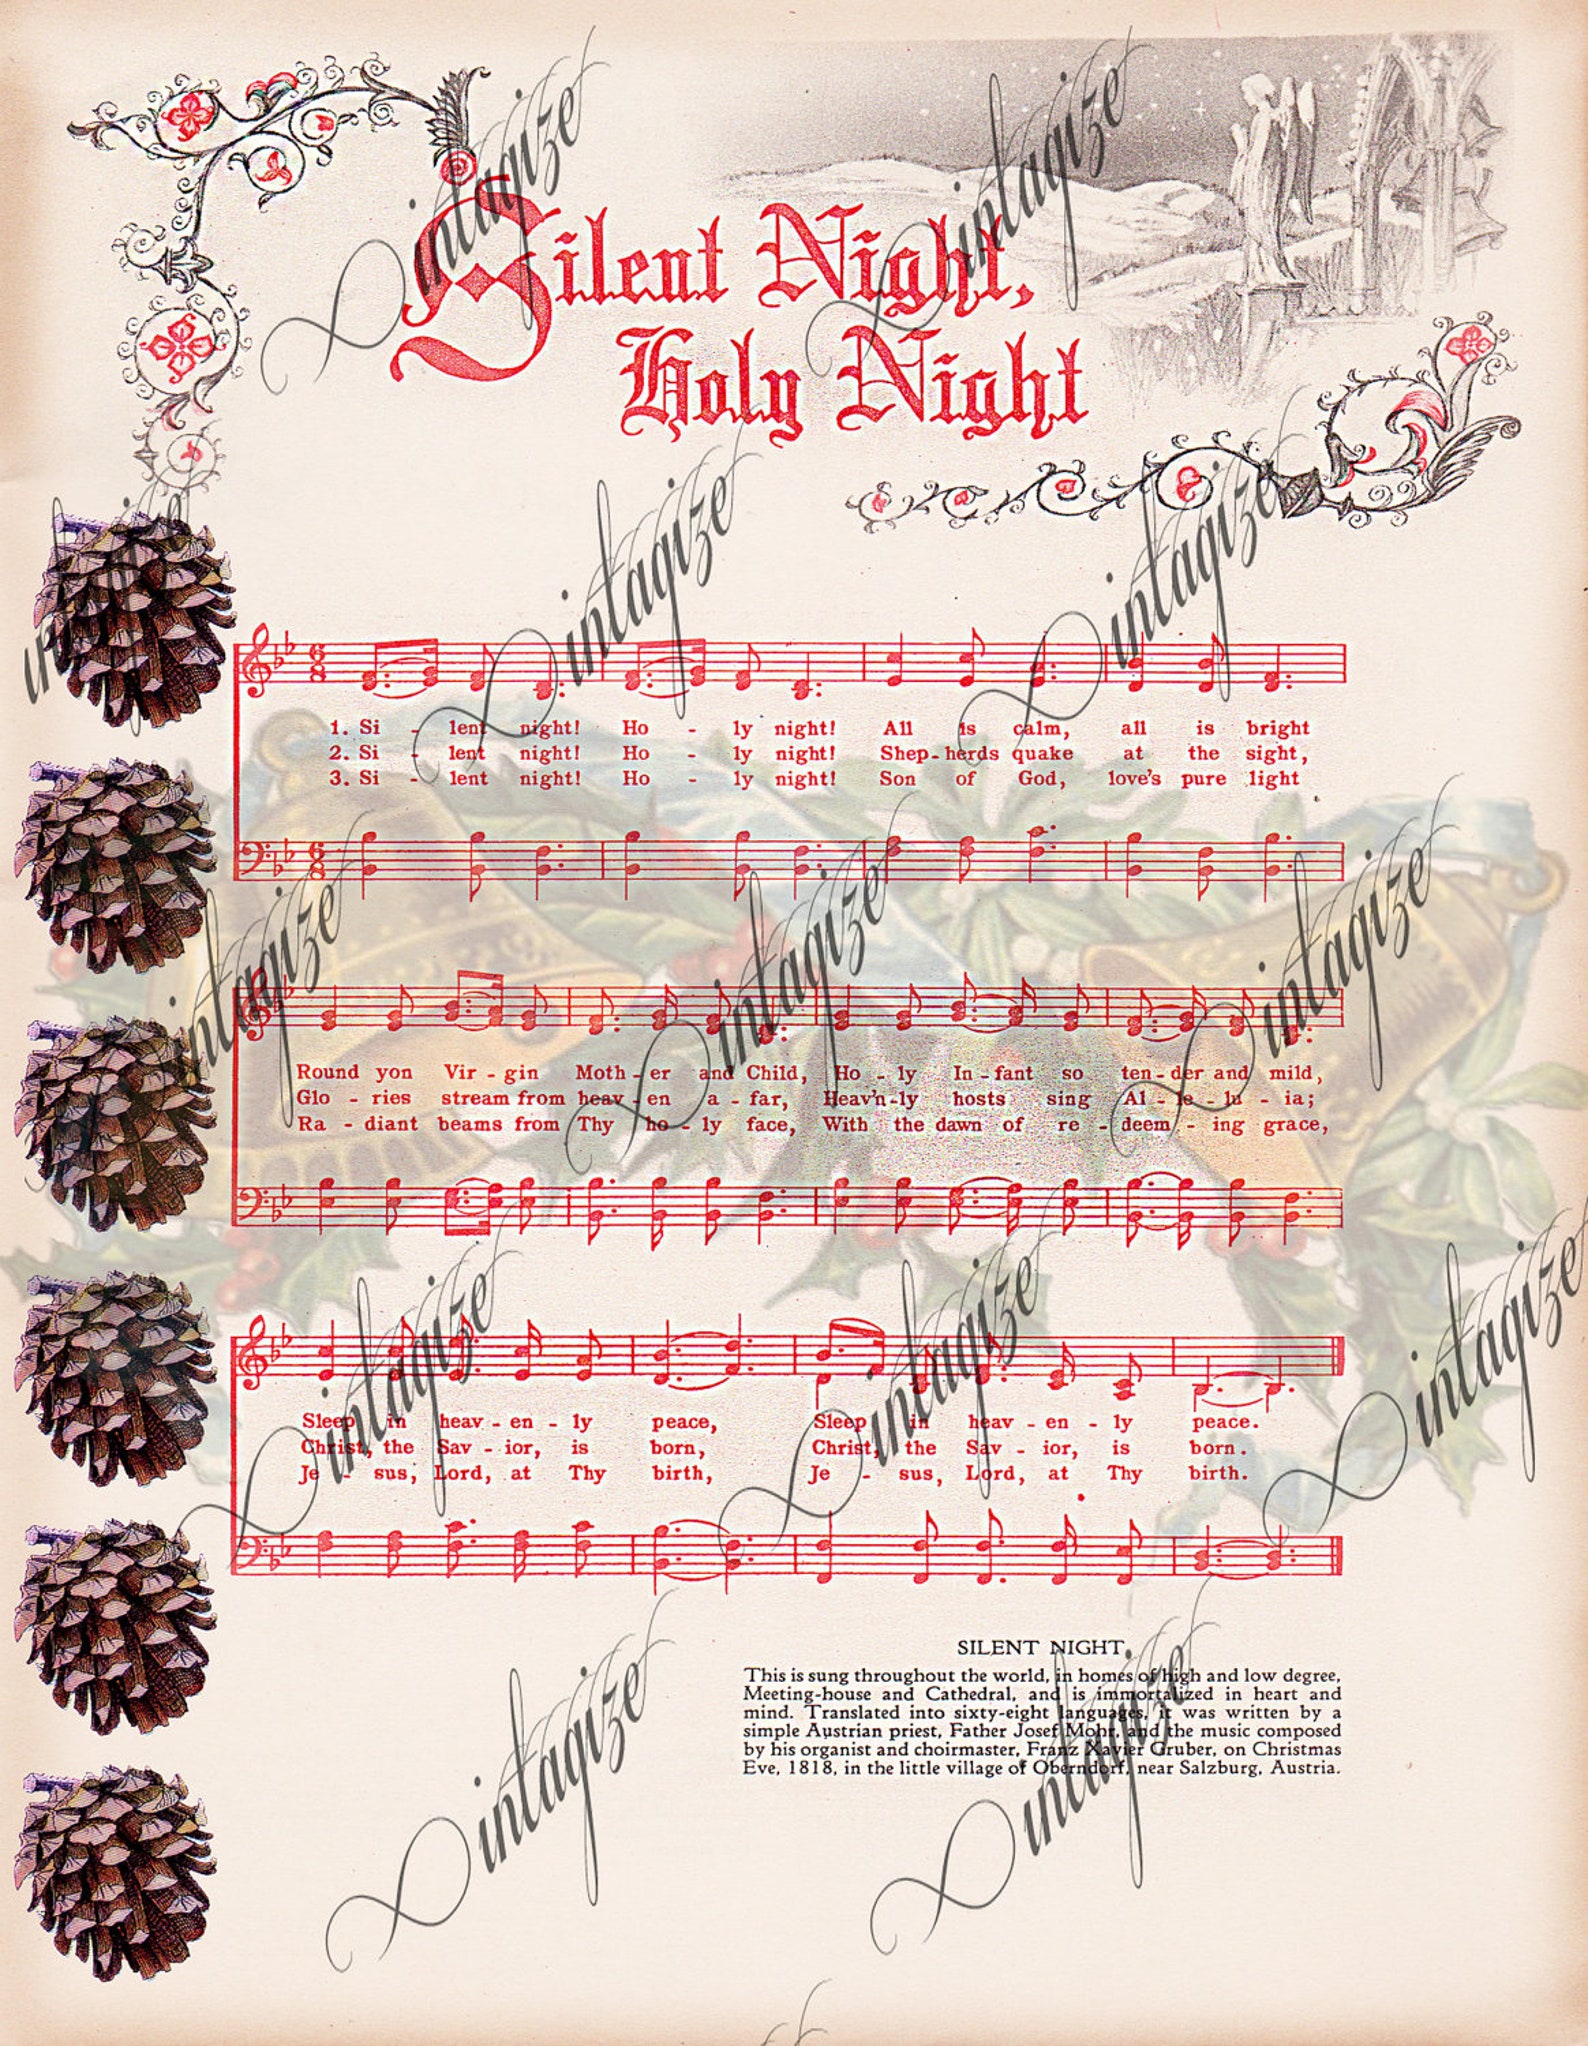 Silent Night,
Holy Night
1. Si - lent night! Ho - ly night! All is calm, all is bright
2. Si - lent night! Ho - ly night! Shep-herds quake at the sight,
3. Si - lent night! Ho - ly night! Son of God, love's pure light
Round yon Vir - gin Moth - er and Child, Ho - ly In - fant so ten - der and mild,
Glo - ries stream from heav - en a - far, Heav'n-ly hosts sing Al - le - lu - ia;
Ra - diant beams from Thy ho - ly face, With the dawn of re - deem - ing grace,
Sleep in heav - en - ly peace, Sleep in heav - en - ly peace.
Christ, the Sav - ior, is born, Christ, the Sav - ior, is born.
Je - sus, Lord, at Thy birth, Je - sus, Lord, at Thy birth.
SILENT NIGHT
This is sung throughout the world, in homes of high and low degree,
Meeting-house and Cathedral, and is immortalized in heart and
mind. Translated into sixty-eight languages, it was written by a
simple Austrian priest, Father Josef Mohr, and the music composed
by his organist and choirmaster, Franz Xavier Gruber, on Christmas
Eve, 1818, in the little village of Oberndorf, near Salzburg, Austria.
Vintagize
Vintagize
Vintagize
Vintagize
Vintagize
Vintagize
Vintagize
Vintagize
Vintagize
Vintagize
Vintagize
Vintagize
Vintagize